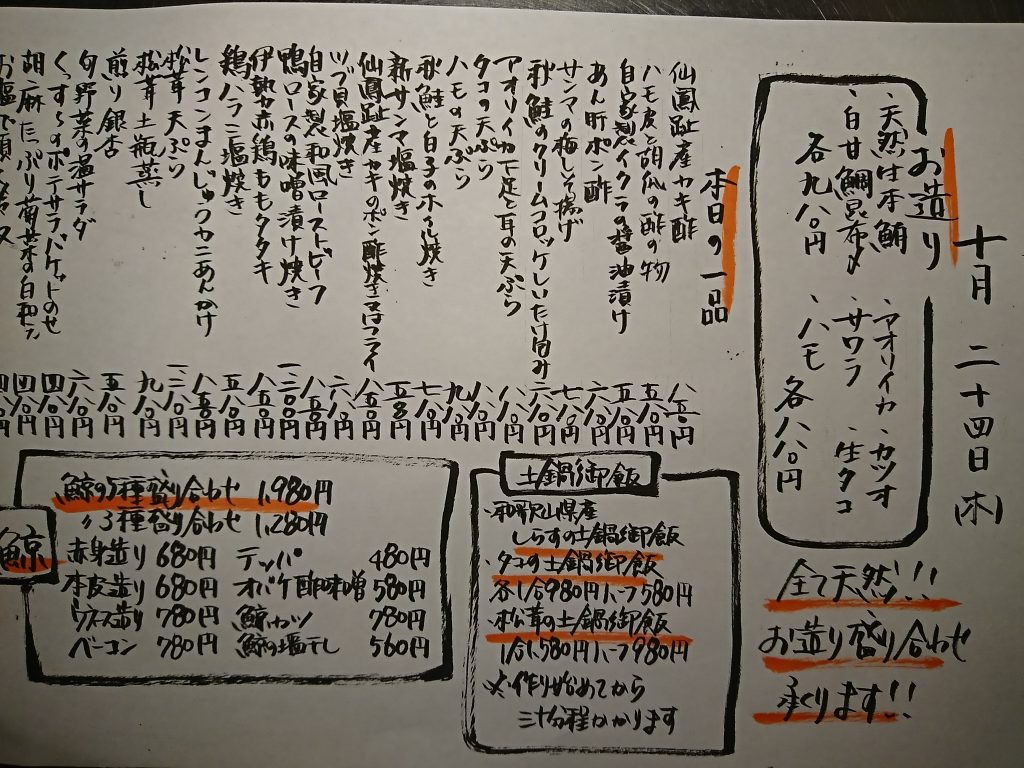 十月 二十四日 (木)
お造り
・天然生本鮪 ・アオリイカ ・カツオ
・白甘鯛昆布〆 ・サワラ ・生タコ
各九八〇円 ・ハモ 各八八〇円
全て天然!!
お造り盛り合わせ
承ります!!
本日の一品
仙鳳趾産カキ酢 八五〇円
ハモ皮と胡瓜の酢の物 五八〇円
自家製イクラの醤油漬け 五八〇円
あん肝ポン酢 六八〇円
サンマの梅しそ揚げ 七八〇円
秋鮭のクリームコロッケしいたけ包み 六八〇円
アオリイカ下足と耳の天ぷら 八八〇円
タコの天ぷら 八八〇円
ハモの天ぷら 九八〇円
秋鮭と白子のホイル焼き 七八〇円
新サンマ塩焼き 五五〇円
仙鳳趾産カキのポン酢焼き又はフライ 八五〇円
ツブ貝塩焼き 六八〇円
自家製和風ローストビーフ 八五〇円
鴨ロースの味噌漬け焼き 一二〇〇円
伊勢赤鶏ももタタキ 八五〇円
鶏ハラミ塩焼き 五八〇円
レンコンまんじゅうカニあんかけ 八五〇円
松茸天ぷら 一二八〇円
松茸土瓶蒸し 九八〇円
煎り銀杏 五八〇円
旬野菜の温サラダ 六八〇円
くっすーのポテサラバケットのせ 四八〇円
胡麻たっぷり菊菜の白和え 四八〇円
土鍋御飯
・和歌山県産
しらすの土鍋御飯
・タコの土鍋御飯
各1合980円ハーフ580円
・松茸の土鍋御飯
1合1,580円ハーフ980円
※作り始めてから
三十分程かかります
鯨
鯨の5種盛り合わせ 1,980円
〃3種盛り合わせ 1,280円
赤身造り 680円 テッパ 480円
本皮造り 680円 オバケ酢味噌 580円
ウネス造り 780円 鯨カツ 780円
ベーコン 780円 鯨の塩干し 560円